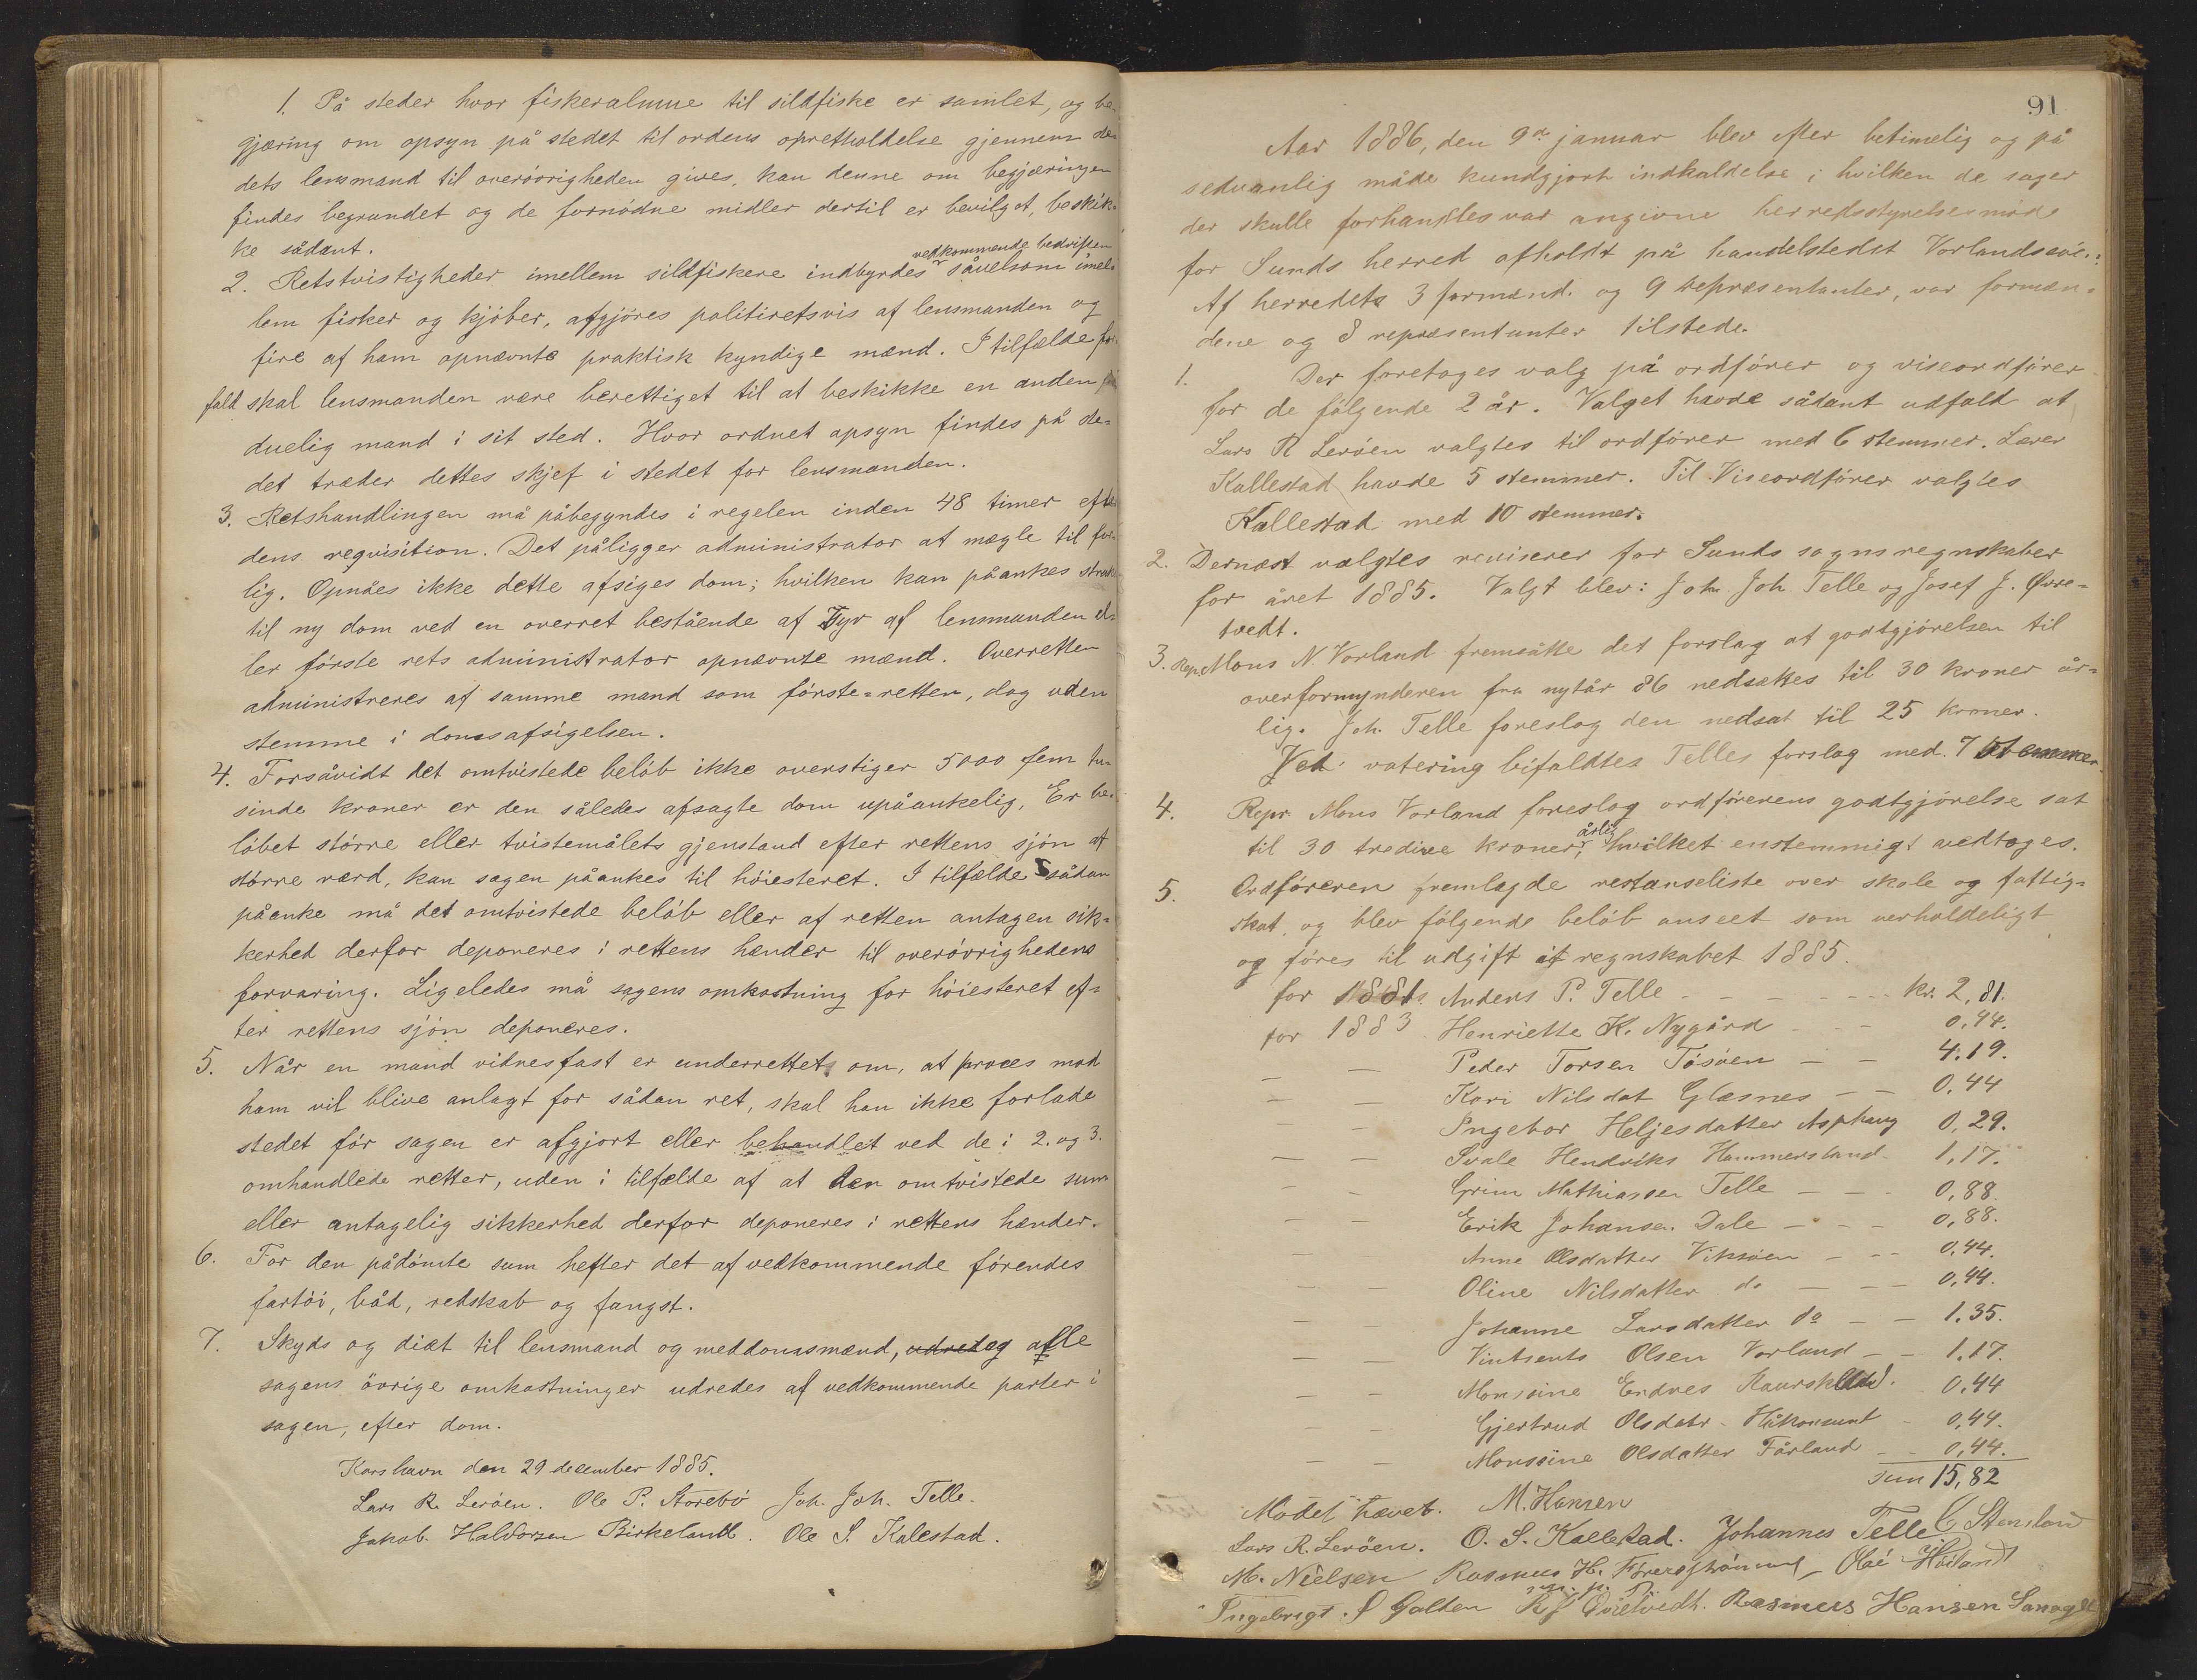 1. På steder hvor fiskeralmue til sildfiske er samlet, og be-
gjæring om opsyn på stedet til ordens opretholdelse gjennem ste-
dets lensmand til overøvrigheden gives, kan denne om begjæringen
findes begrundet og de fornødne midler dertil er bevilget, beskik-
ke sådant.
vedkommende bedriften
2. Retstvistigheder imellem sildfiskere indbyrdes såvelsom imel-
lem fisker og kjøber, afgjöres politiretsvis af lensmanden og
fire af ham opnævnte praktisk kyndige mænd. I tilfælde for-
fald skal lensmanden være berettiget til at beskikke en anden
duelig mand i sit sted. Hvor ordnet opsyn findes på ste-
det træder dettes skjef i stedet for lensmanden.
3. Retshandlingen må påbegyndes i regelen inden 48 timer efter
dens reqvisition. Det påligger administrator at mægle til for-
lig. Opnåes ikke dette afsiges dom; hvilken kan påankes strax
til ny dom ved en overret bestående af Fyr af lensmanden el-
ler förste rets administrator opnævnte mænd. Overretten
administreres af samme mand som förste-retten, dog uden
stemme i domsafsigelsen.
4. Forsåvidt det omtvistede belöb ikke overstiger 5000 fem tu-
sinde kroner er den således afsagte dom upåankelig. Er be-
löbet större eller tvistemålets gjenstand efter rettens sjön af
större værd, kan sagen påankes til höiesteret. I tilfælde sådan
påanke må det omtvistede belöb eller af retten antagen sik-
kerhed derfor deponeres i rettens hænder til overövrighedens
forvaring. Ligeledes må sagens omkostning for höiesteret ef-
ter rettens sjön deponeres.
5. Når en mand vidnesfast er underrettet om, at proces mod
ham vil blive anlagt for sådan ret, skal han ikke forlade
stedet för sagen er afgjort eller behandlet ved de i 2. og 3.
omhandlede retter, uden i tilfælde af at den omtvistede sum
eller antagelig sikkerhed derfor deponeres i rettens hænder.
6. For den pådömte sum hefter det af vedkommende förendes
fartöi, båd, redskab og fangst.
7. Skyds og diæt til lensmand og meddomsmænd, udredes og alle
sagens övrige omkostninger udredes af vedkommende parter i
sagen, efter dom.
Korshavn den 29 december 1885.
Lars R. Leröen. Ole P. Storebö Joh. Joh. Telle.
Jakob Haldorsen Birkeland. Ole S. Kalestad.
91
Aar 1886, den 9de januar blev efter betimelig og på
sedvanlig måde kundgjort indkaldelse i hvilken de sager
der skulle forhandles var angivne herredsstyrelsesmöde
for Sunds herred afholdt på handelstedet Vorlandsvå..:
Af herredets 3 formænd. og 9 repræsentanter, var formæn-
dene og 8 repræsentanter tilstede.
1. Der foretoges valg på ordförer og viseordförer
for de fölgende 2 år. Valget havde sådant udfald at
Lars R Leröen valgtes til ordförer med 6 stemmer. Lærer
Kallestad havde 5 stemmer. Til Viseordförer valgtes
Kallestad med 10 stemmer.
2. Dernæst valgtes reviserer for Sunds sogns regnskaber
for året 1885. Valgt blev: Joh. Joh. Telle og Josef J. Øvre-
tvedt.
3. Rep. Mons N. Vorland fremsatte det forslag at godtgjörelsen til
overformynderen fra nytår 86 nedsættes til 30 kroner år-
lig. Joh. Telle foreslog den nedsat til 25 kroner.
Ved votering bifaldtes Telles forslag med 7 stemmer.
4. Repr. Mons Vorland foreslog ordförerens godtgjörelse sat
årlig
til 30 tredive kroner, hvilket enstemmigt vedtoges.
5. Ordföreren fremlagde restanseliste over skole og fattig-
skat, og blev fölgende belöb anseet som uerholdeligt
og föres til udgift i regnskabet 1885.
for 1881. Anders P. Telle - - - - - kr. 2,81.
for 1883 Henriette K. Nygård - - 0,44.
— — Peder Torsen Tösöen — — 4.19.
— — Kari Nilsdat Glæsnes — — 0,44
— — Ingebor Heljesdatter Asphaug 0,29.
— — Svale Hendriks Hammersland. 1,17.
— — Grim Mathiassen Telle — — 0,88.
— — Erik Johansen. Dale — — 0,88.
— — Anne Olsdatter Viksöen — — 0,44.
— — Oline Nilsdatter do — — 0,44.
— — Johanne Larsdatter do — — 1.35.
— — Vintsents Olsen Vorland — — 1.17.
— — Monssine Endres 0,44
— — Gjertrud Olsdatr. Håkonsund - 0,44.
— — Monssine Olsdatter Förland - - 0,44.
Sum 15,82
Mödet hævet. M. Hansen
Lars R. Leröen. O. S. Kallestad. Johannes Telle C Stensland
M. Nielsen Rasmus H. Olai Höiland
m. p. P.
Ingebrigt. S Golten Øvretvedt. Rasmus Hansen